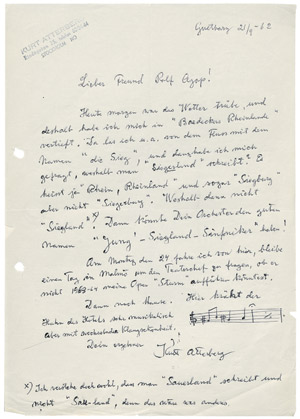 KURT ATTERBERG
Grolberg 21/9 -62
Lieber Freund Rolf Agop!
Heute morgen war das Wetter trübe und
deshalb habe ich mich in "Baedeker Rheinlande"
vertieft. Da las ich u.a. von dem Fluss mit dem
Namen "die Sieg", und da habe ich mich
gefragt, weshalb man "Siegerland" schreibt? Es
heisst ja "Rhein, Rheinland" und sogar "Siegburg"
aber nicht "Siegerburg". Weshalb denn nicht
"Siegland"? x) Dann könnte Dein Orchester den guten
Namen "Jung-Siegland-Sinfoniker" haben!
Am Montag den 24 fahre ich von hier, bleibe
einen Tag in Malmö um den Teaterchef zu fragen, ob er
nicht 1963 meine Oper "Sturm" aufführen könnte.
Dann nach Hause. Hier kräht der
Hahn des Hotels sehr musikalisch
aber mit wechselnder Klangschönheit!
Dein ergebener
Kurt Atterberg
x) Ich verstehe doch wohl, dass man "Sauerland" schreibt und
nicht "Sauland", denn das wäre was anderes